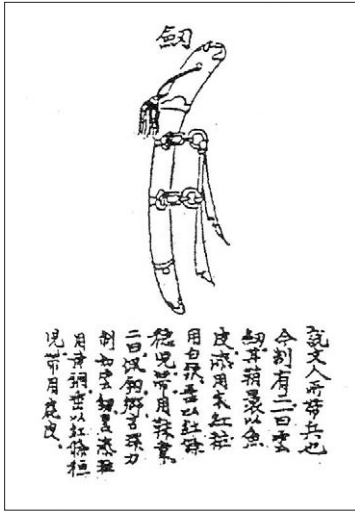 劒
說文人所帶兵也
今制有二一曰雲
劒其鞘裹以魚
皮漆用朱紅粧
用白銀垂以紅絛
穗兒帶用韋
二曰佩劒環刀
制如雲劒黑漆粧
用黃銅垂以紅絛穗
兒帶用鹿皮